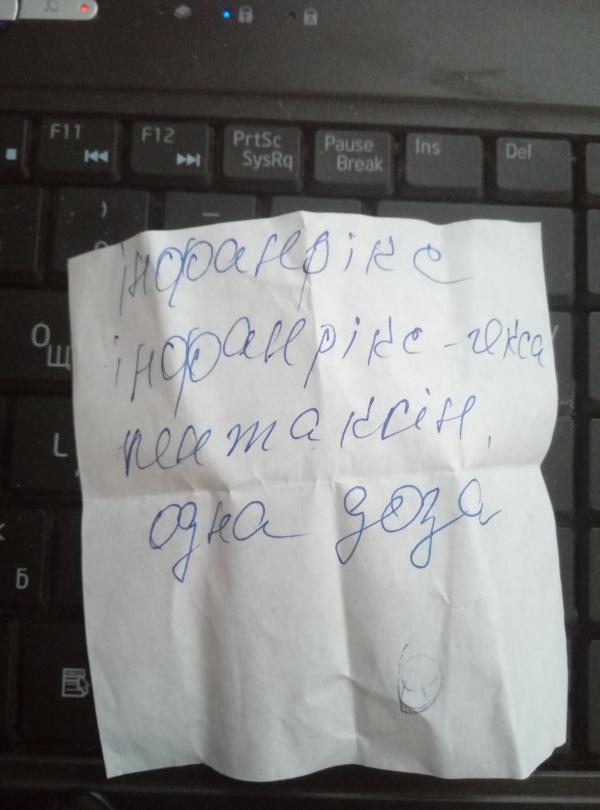 F11
F12
PrtSc
SysRq
Pause
Break
Ins
Del
)
інфанрікс
інфанрікс-гекса
пентаксін,
одна доза
Щ
L
Б